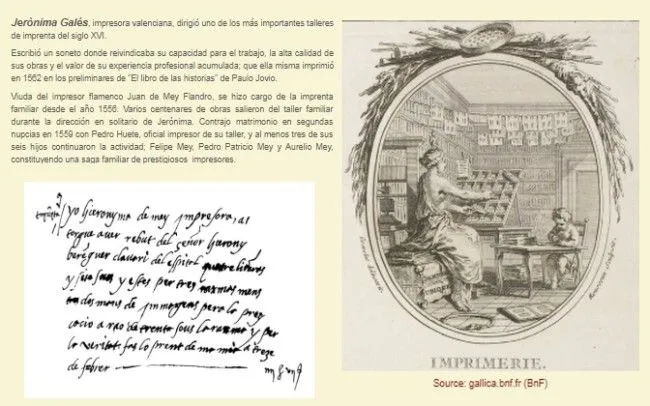 Jerònima Galés, impresora valenciana, dirigió uno de los más importantes talleres
de imprenta del siglo XVI.
Escribió un soneto donde reivindicaba su capacidad para el trabajo, la alta calidad de
sus obras y el valor de su experiencia profesional acumulada; que ella misma imprimió
en 1562 en los preliminares de "El libro de las historias" de Paulo Jovio.
Viuda del impresor flamenco Juan de Mey Flandro, se hizo cargo de la imprenta
familiar desde el año 1556. Varios centenares de obras salieron del taller familiar
durante la dirección en solitario de Jerónima. Contrajo matrimonio en segundas
nupcias en 1559 con Pedro Huete, oficial impresor de su taller, y al menos tres de sus
seis hijos continuaron la actividad; Felipe Mey, Pedro Patricio Mey y Aurelio Mey,
constituyendo una saga familiar de prestigiosos impresores.
yo hieronyma de mey impresora, at
torgue aver rebut del señor hierony
del espital
y per
de
de febrer
IMPRIMERIE.
Source: gallica.bnf.fr (BnF)